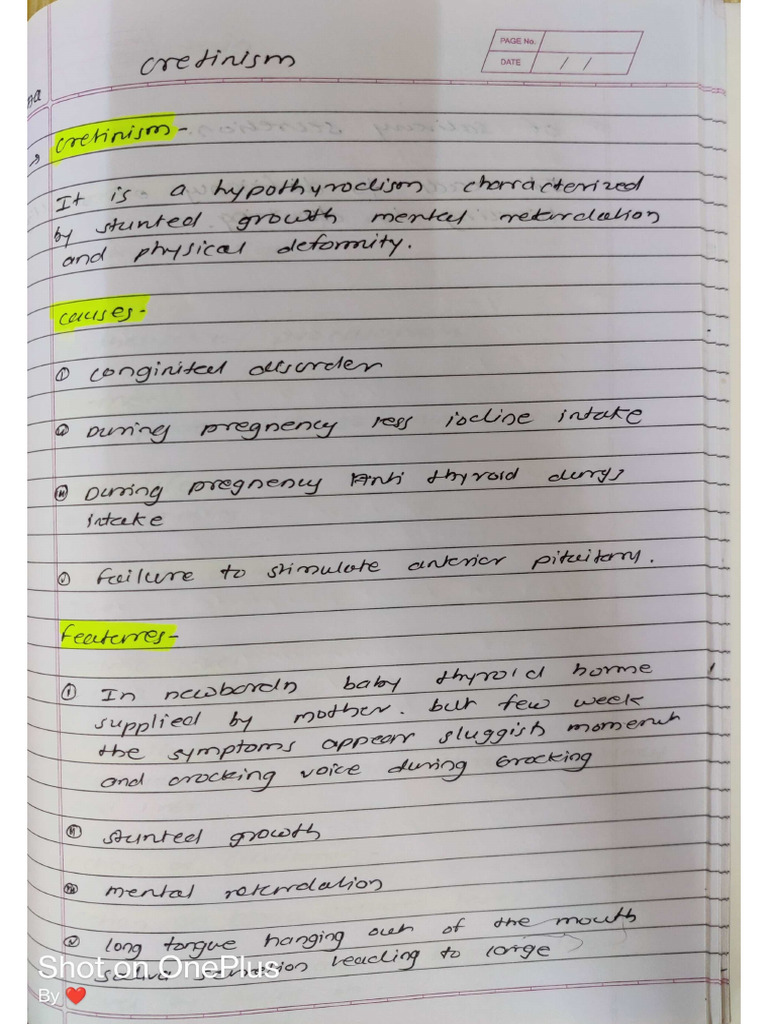 cretinism
PAGE No.
DATE / /
cretinism-
It is a hypothyrodism characterized
by stunted growth mental retardation
and physical deformity.
causes-
① conginital disorder
② During pregnency less iodine intake
③ During pregnency Anti thyroid durgs
intake
④ failure to stimulate anterior pitutary.
features-
① In newbordn baby thyroid horme
supplied by mother. but few week
the symptoms appear sluggish moment
and crocking voice during crocking
② stunted growth
③ mental retardation
④ long tongue hanging out of the mouth
saliva secretion leading to large
Shot on OnePlus
By ❤️